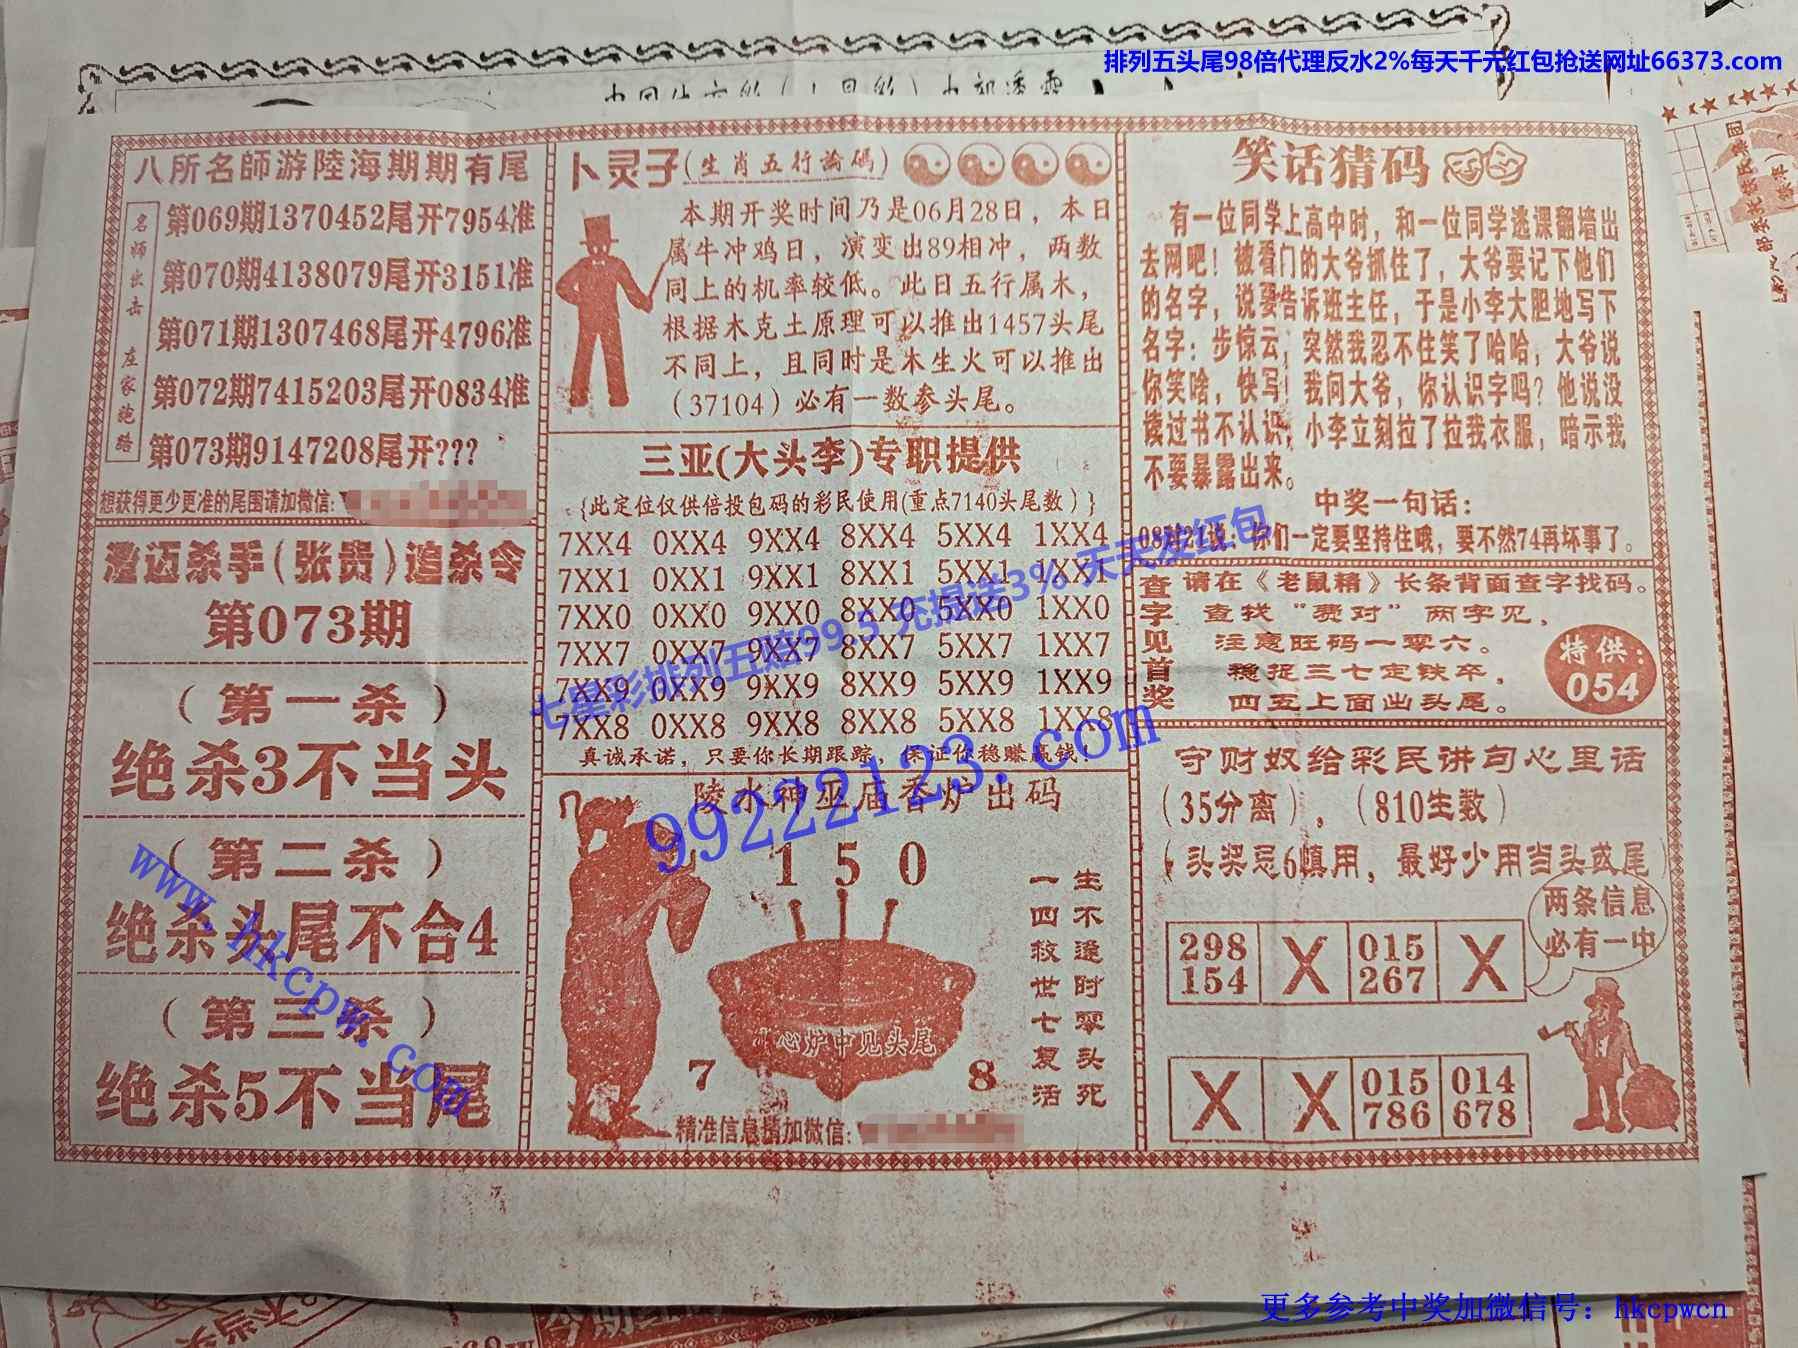 排列五头尾98倍代理反水2%每天千元红包抢送网址66373.com
八所名師游陸海期期有尾
名师出击 庄家跑路
第069期1370452尾开7954准
第070期4138079尾开3151准
第071期1307468尾开4796准
第072期7415203尾开0834准
第073期9147208尾开???
想获得更少更准的尾围请加微信:
澄迈杀手(张贵)追杀令
第073期
(第一杀)
绝杀3不当头
(第二杀)
绝杀头尾不合4
(第三杀)
绝杀5不当尾
卜灵子(生肖五行論碼)
本期开奖时间乃是06月28日，本日
属牛冲鸡日，演变出89相冲，两数
同上的机率较低。此日五行属木，
根据木克土原理可以推出1457头尾
不同上，且同时是木生火可以推出
（37104）必有一数参头尾。
三亚(大头李)专职提供
{此定位仅供倍投包码的彩民使用(重点7140头尾数)}
7XX4 0XX4 9XX4 8XX4 5XX4 1XX4
7XX1 0XX1 9XX1 8XX1 5XX1 1XX1
7XX0 0XX0 9XX0 8XX0 5XX0 1XX0
7XX7 0XX7 9XX7 8XX7 5XX7 1XX7
7XX9 0XX9 9XX9 8XX9 5XX9 1XX9
7XX8 0XX8 9XX8 8XX8 5XX8 1XX8
真诚承诺，只要你长期跟踪，保证你稳赚赢钱！
陵水神巫庙香炉出码
1 5 0
心炉中见头尾
7
8
生不逢时零头死
一四救世七复活
精准信息请加微信:
笑话猜码
有一位同学上高中时，和一位同学逃课翻墙出
去网吧！被看门的大爷抓住了，大爷要记下他们
的名字，说要告诉班主任，于是小李大胆地写下
名字：步惊云；突然我忍不住笑了哈哈，大爷说
你笑啥，快写！我问大爷，你认识字吗？他说没
读过书不认识；小李立刻拉了拉我衣服，暗示我
不要暴露出来。
中奖一句话：
08对21说：你们一定要坚持住哦，要不然74再坏事了。
查字见首奖
请在《老鼠精》长条背面查字找码。
查找“赛对”两字见，
注意旺码一零六。
稳捉三七定铁卒，
四五上面出头尾。
特供：
054
守财奴给彩民讲句心里话
（35分离），（810生数）
（头奖忌6慎用，最好少用当头或尾）
两条信息
必有一中
298 X 015 X
154 267
X X 015 014
786 678
七星彩排列五赔99.5 充提送3% 天天发红包
99222123.com
www.hkcpw.com
更多参考中奖加微信号：hkcpwcn